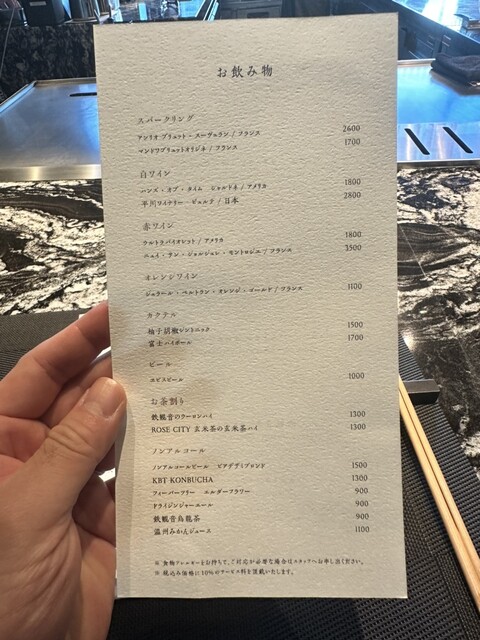 お飲み物
スパークリング
アンリオ ブリュット・スーヴェラン / フランス 2600
マンドワブリュットオリジネ / フランス 1700
白ワイン
ハンズ・オブ・タイム シャルドネ / アメリカ 1800
平川ワイナリー / 日本 2800
赤ワイン
ウルトラバイオレット / アメリカ 1800
ニュイ・サン・ジョルジュ・モンロジエ / フランス 3500
オレンジワイン
ジェラール・ベルトラン・オレンジ・ゴールド / フランス 1100
カクテル
柚子胡椒ジントニック 1500
富士ハイボール 1700
ビール
エビスビール 1000
お茶割り
鉄観音のウーロンハイ 1300
ROSE CITY 玄米茶の玄米茶ハイ 1300
ノンアルコール
ノンアルコールビール ビアデザミブロンド 1500
KBT KONBUCHA 1300
フィーバーツリー エルダーフラワー 900
ドライジンジャーエール 900
鉄観音烏龍茶 900
温州みかんジュース 1100
※食物アレルギーをお持ちで、ご対応が必要な場合はスタッフへお申し出ください。
※税込み価格に10%のサービス料を頂戴いたします。